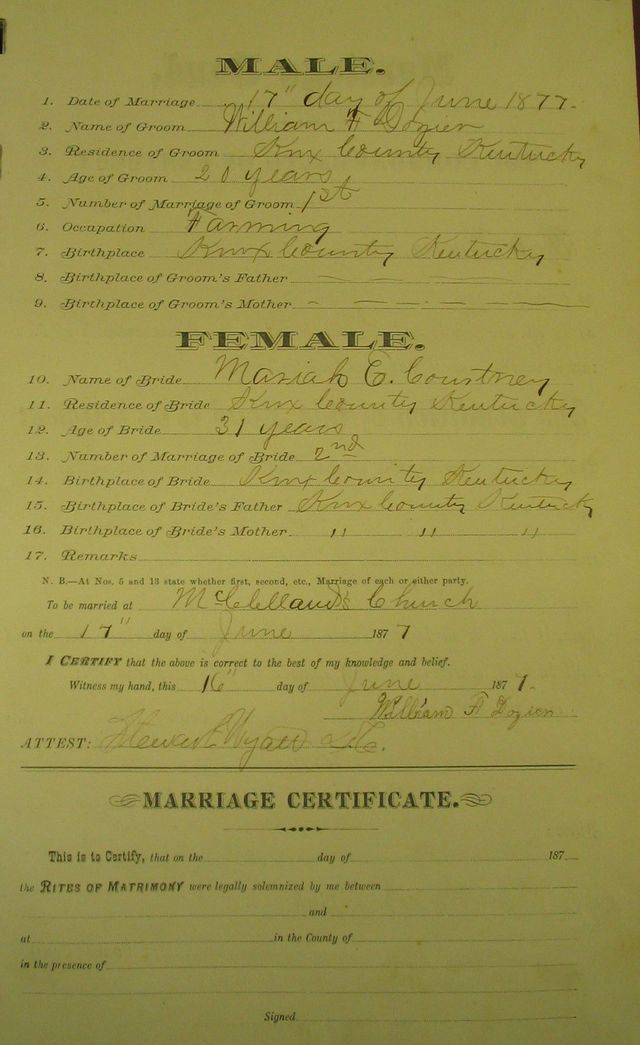 MALE.
1. Date of Marriage 17" day of June 1877.
2. Name of Groom William F Dozier
3. Residence of Groom Knx County Kentucky
4. Age of Groom 20 years
5. Number of Marriage of Groom 1st
6. Occupation Farming
7. Birthplace Knx County Kentucky
8. Birthplace of Groom's Father
9. Birthplace of Groom's Mother
FEMALE.
10. Name of Bride Mariah E. Courtney
11. Residence of Bride Knx County Kentucky
12. Age of Bride 31 years
13. Number of Marriage of Bride 2nd
14. Birthplace of Bride Knx County Kentucky
15. Birthplace of Bride's Father Knx County Kentucky
16. Birthplace of Bride's Mother. " " "
17. Remarks
N. B.—At Nos. 5 and 13 state whether first, second, etc., Marriage of each or either party.
To be married at McClelland's Church
on the 17" day of June 1877
I CERTIFY that the above is correct to the best of my knowledge and belief.
Witness my hand, this 16" day of June 1877.
William F Dozier
ATTEST: Wyatt
MARRIAGE CERTIFICATE.
This is to Certify, that on the day of 187
the RITES OF MATRIMONY were legally solemnized by me between
and
at in the County of
in the presence of
Signed